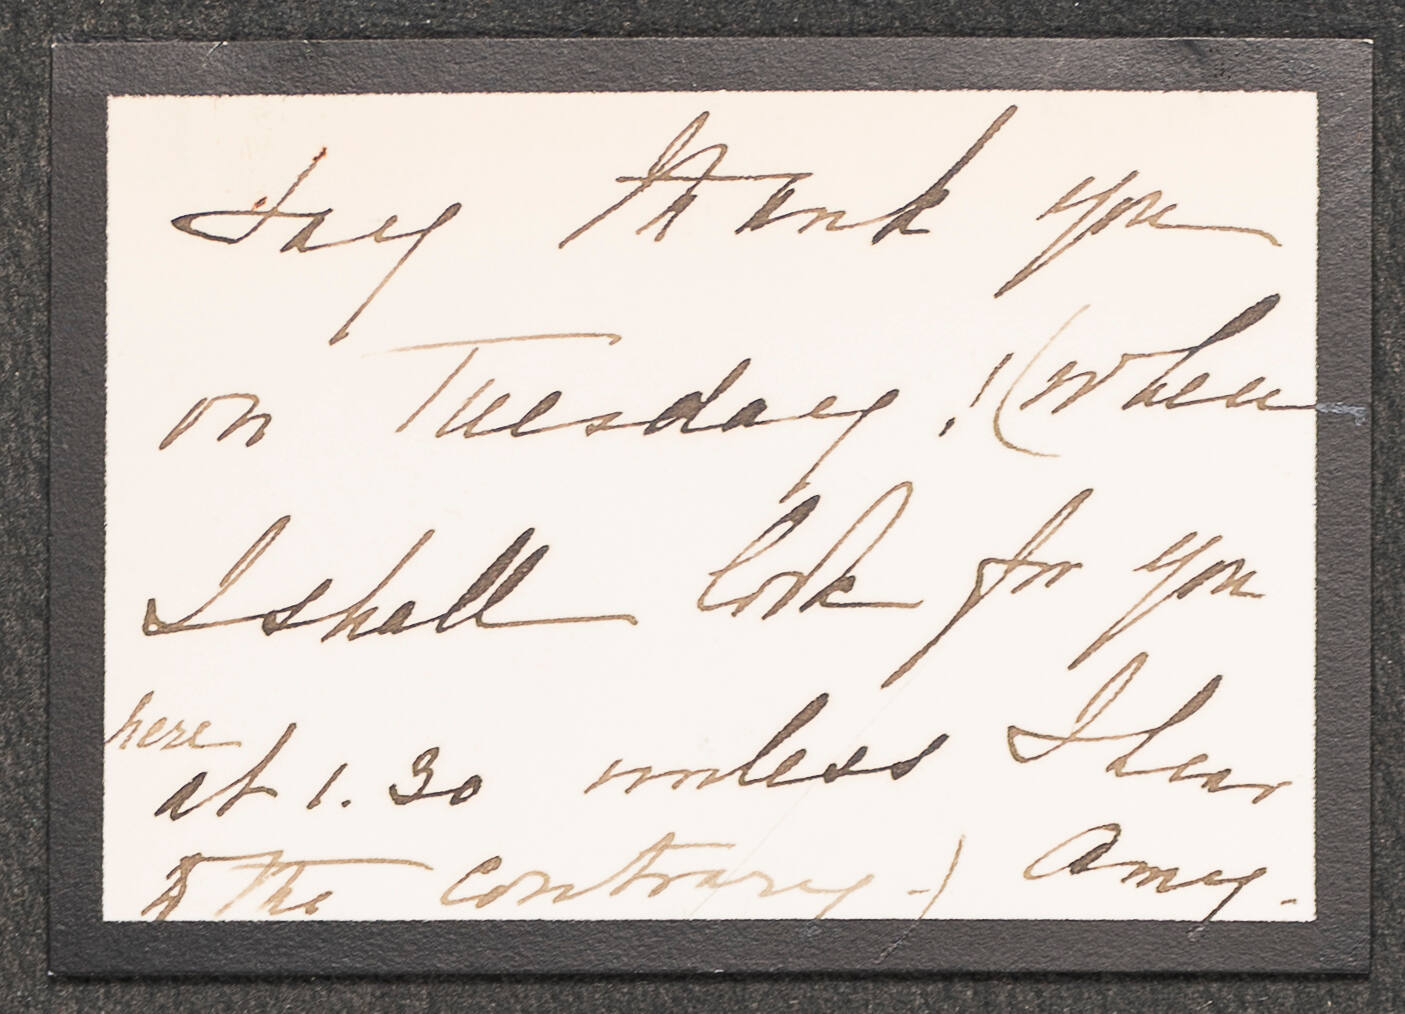 say thank you
on Tuesday! (when
I shall look for you
here
at 1.30 unless I hear
to the contrary -) Amy.